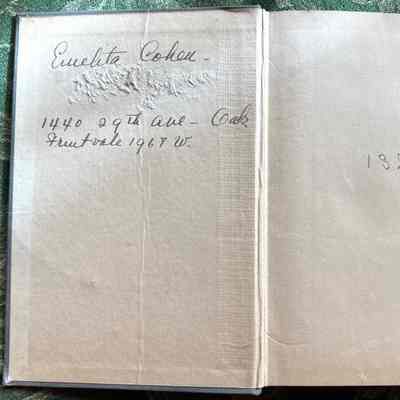 Emelita Cohen -
1440 29th Ave - Oak
Fruitvale 1968 W.
13